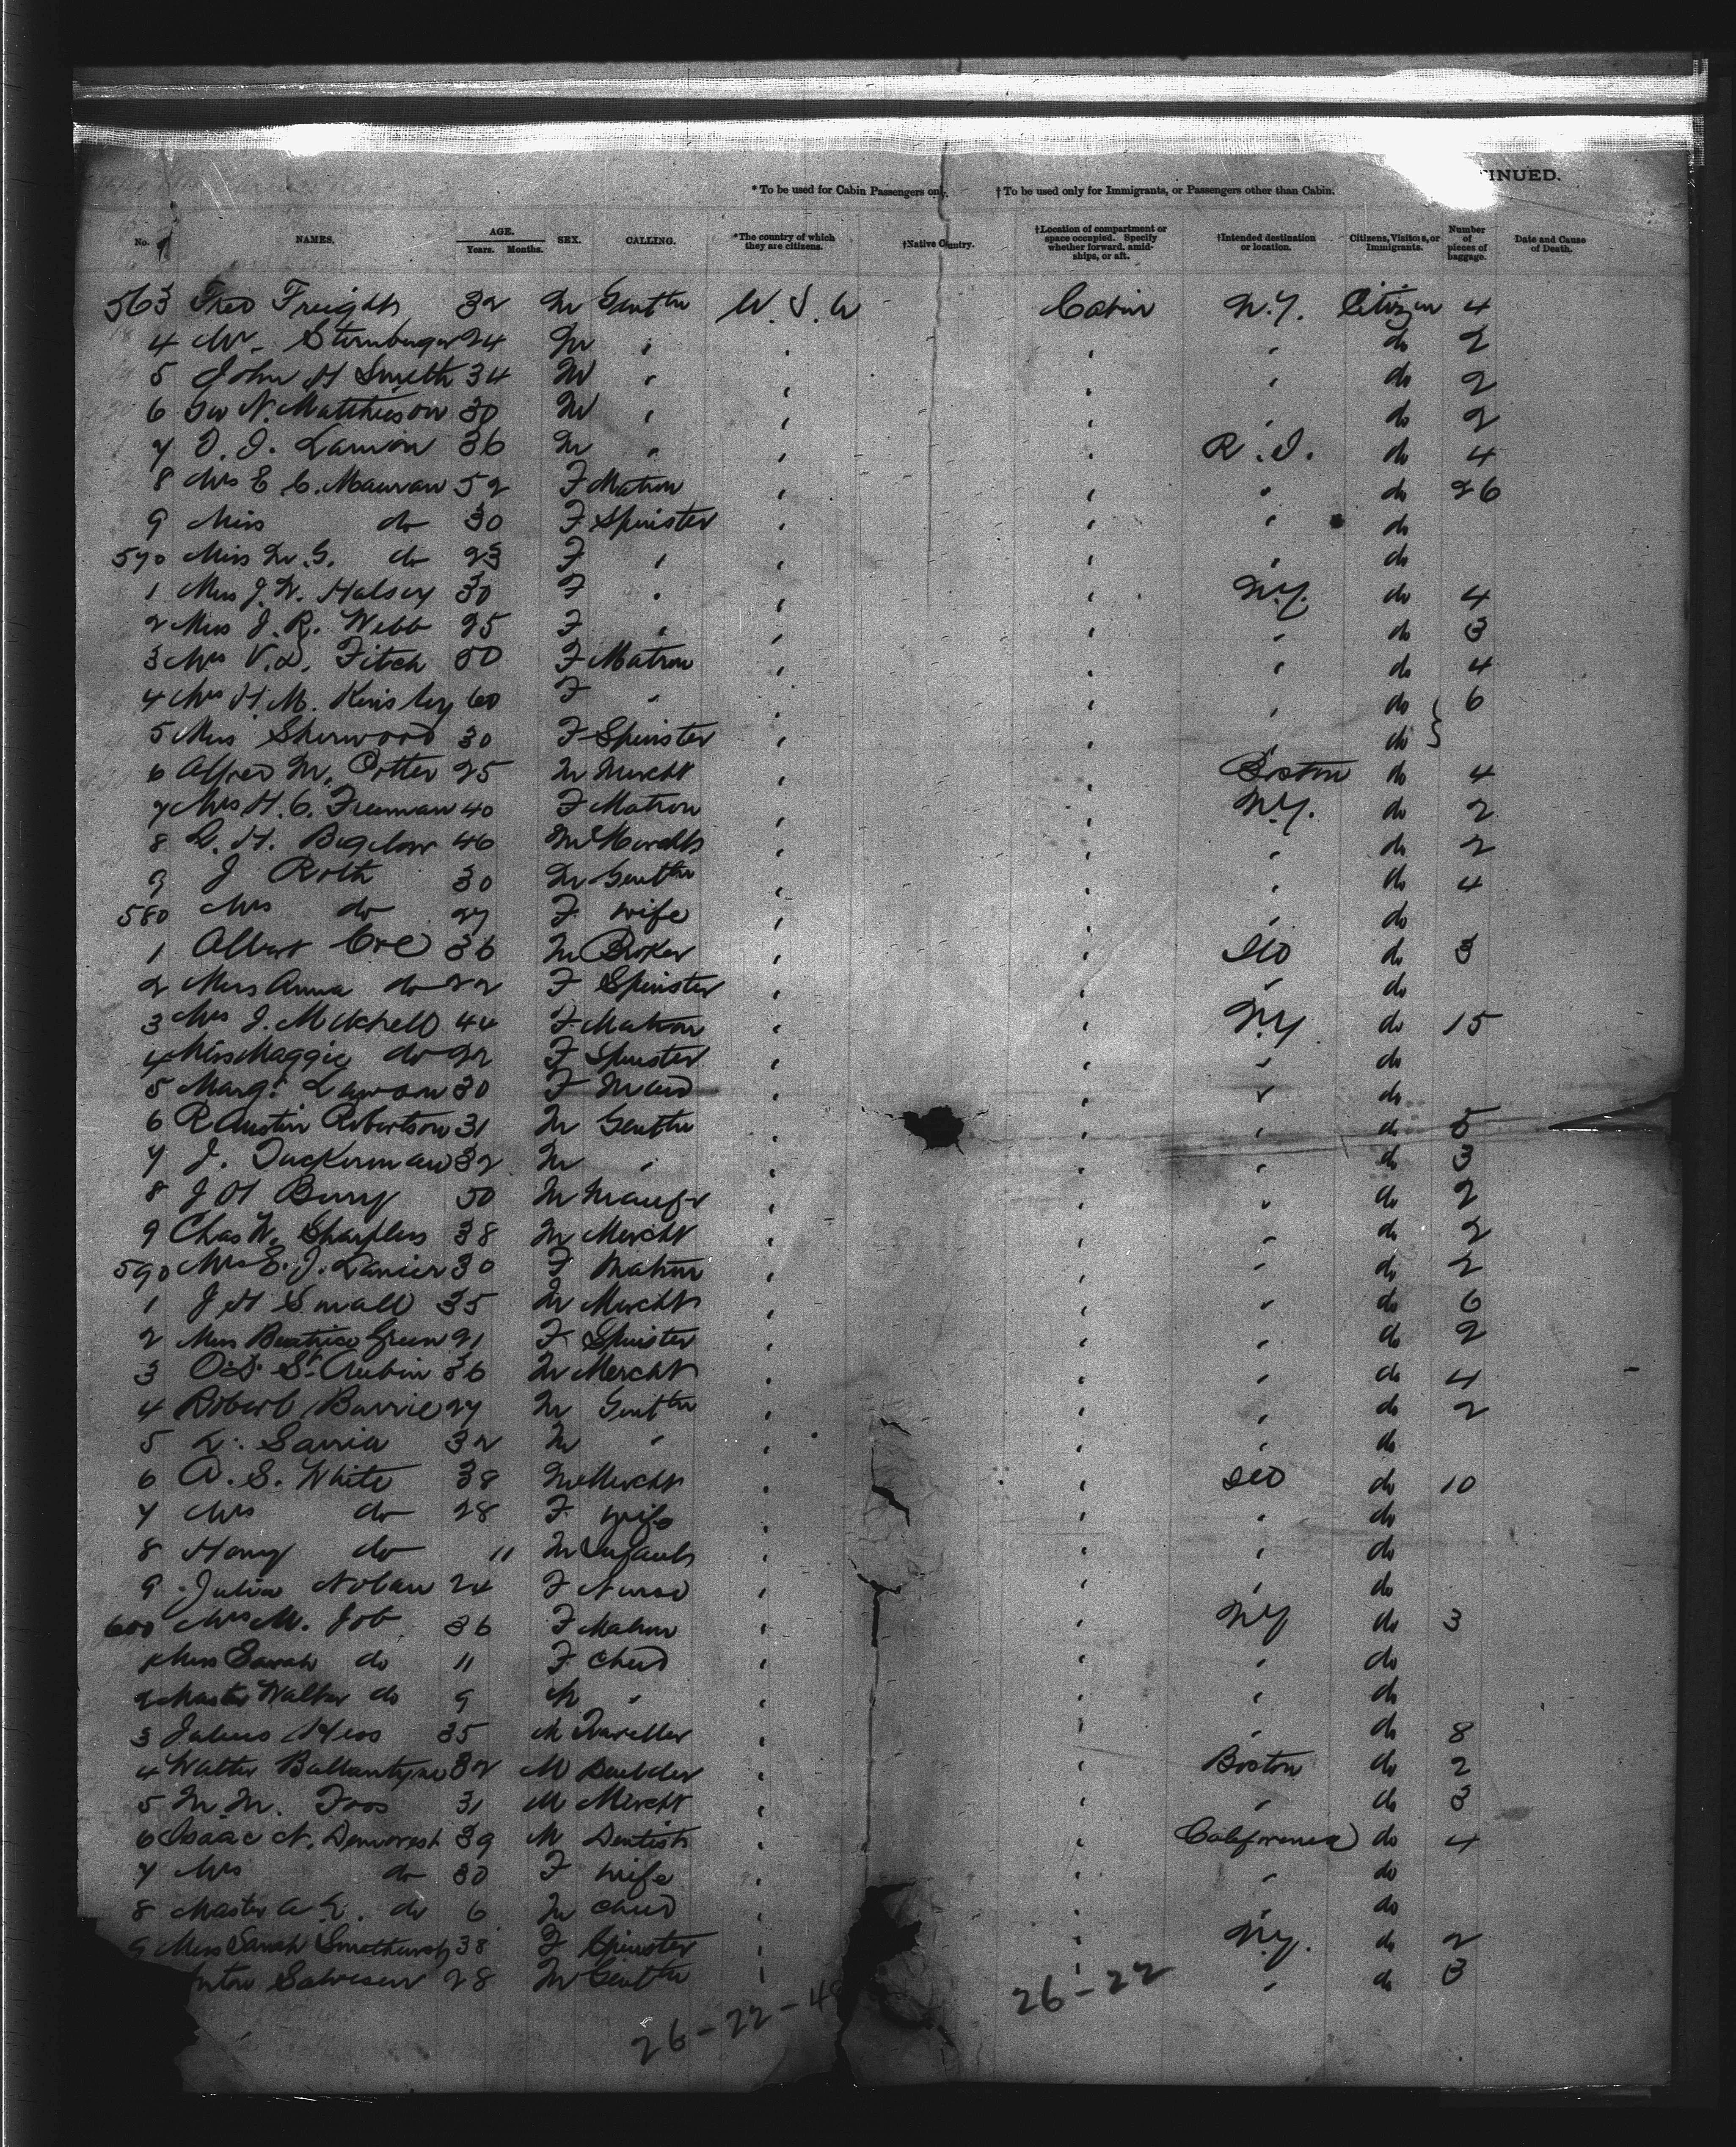 INUED.
*To be used for Cabin Passengers only. †To be used only for Immigrants, or Passengers other than Cabin.
No. NAMES. AGE. Years. Months. SEX. CALLING. *The country of which they are citizens. †Native Country. †Location of compartment or space occupied. Specify whether forward, amidships, or aft. †Intended destination or location. Citizens, Visitors, or Immigrants. Number of pieces of baggage. Date and Cause of Death.
563 Fred 32 M Gentln U.S.A Cabin N.Y. Citizen 4
4 Mr. Sternberger 24 M " " " " do 2
5 John H Smith 34 M " " " " do 2
6 Geo N. Matthieson 30 M " " " " do 2
7 36 M " " " R.I. do 4
8 Mrs E C. Mauran 52 F Matron " " " do 26
9 Miss do 30 F Spinster " " " do
570 Miss do 23 F " " " " do
1 Miss J. W. Halsey 30 F " " " N.Y. do 4
2 Miss J. R. Webb 25 F " " " " do 3
3 Mrs V. D. Fitch 50 F Matron " " " do 4
4 Mrs H. M. Kinsley 60 F " " " " do 6
5 Miss Sherwood 30 F Spinster " " " do
6 Alfred M. Potter 25 M Mercht " " Boston do 4
7 Mrs H. C. Freeman 40 F Matron " " N.Y. do 2
8 L. H. Bigelow 46 M " " " do 2
9 J Roth 30 M Gentln " " " do 4
580 Mrs do 27 F wife " " " do
1 Albert 36 M Broker " " do 3
2 Miss Anna do 22 F Spinster " " " do
3 Mrs J. Mitchell 44 F Matron " " N.Y do 15
4 Miss Maggie do 22 F Spinster " " " do
5 Margt Lawson 30 F Maid " " " do
6 R Austin Robertson 31 M Gentln " " " do 5
7 J. Tuckerman 32 M " " " " do 3
8 J H 50 M Manfr " " " do 2
9 Chas W. Sharpless 38 M Mercht " " " do 2
590 Mrs E. J. Lanier 30 F Matron " " " do 2
1 J H Small 35 M Mercht " " " do 6
2 Miss Beatrice Green 21 F Spinster " " " do 2
3 St. Aubin 36 M Mercht " " " do 4
4 Robert Barrie 27 M Gentln " " " do 2
5 Sarria 32 M " " " " do
6 A. S. White 38 M Mercht " " do 10
7 Mrs do 28 F wife " " " do
8 Harry do 11 M Infant " " " do
9 Julia Nolan 24 F Nurse " " " do
600 Mrs M. Job 36 F Matron " " NY do 3
1 Miss Sarah do 11 F Child " " " do
2 Master Walter do 9 M " " " " do
3 Julius Hess 35 M Traveller " " " do 8
4 Walter Ballantyne 32 M Builder " " Boston do 2
5 M. M. Foos 31 M Mercht " " " do 3
6 Isaac N. Demorest 39 M Dentist " " California do 4
7 Mrs do 30 F wife " " " do
8 Master do 6 M Child " " " do
9 Miss Sarah Smethurst 38 F Spinster " " N.Y. do 2
Salvesen 28 M Gentln " " " do 3
26-22-48 26-22